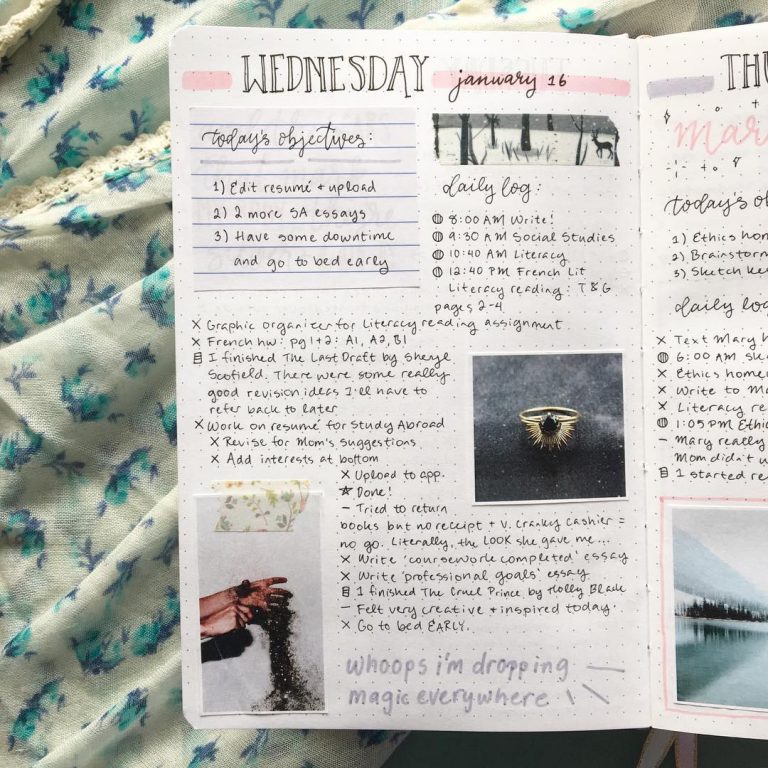 WEDNESDAY january 16
today's objectives:
1) Edit resumé + upload
2) 2 more SA essays
3) Have some downtime
and go to bed early
daily log:
8:00 AM Write!
9:30 AM Social Studies
10:40 AM Literacy
12:40 PM French Lit
Literacy reading: T & G
pages 2-4
x Graphic organizer for Literacy reading assignment
x French hw: pg 1+2: A1, A2, B1
I finished The Last Draft by Sheryl
Scofield. There were some really
good revision ideas I'll have to
refer back to later
x Work on resumé for Study Abroad
x Revise for Mom's suggestions
x Add interests at bottom
x Upload to app.
Done!
– Tried to return
books but no receipt + v. cranky cashier =
no go. Literally, the LOOK she gave me...
x Write 'coursework completed' essay
x Write 'professional goals' essay
I finished The Cruel Prince by Holly Black
– Felt very creative + inspired today.
x Go to bed EARLY.
whoops i'm dropping
magic everywhere
THU
mar
today's ob
1) Ethics hom
2) Brainstorm
3) Sketch key
daily log
x Text Mary h
6:00 AM
x Ethics homew
x Write to Ma
x Literacy re
1:05 PM Ethic
– Mary really
Mom didn't w
I started re